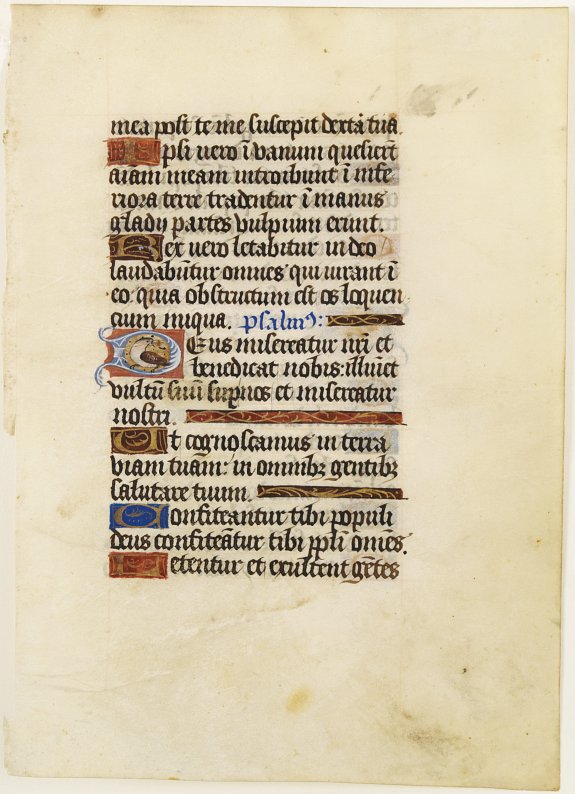 mea post te me suscepit dextā tua.
Ipsi uero ī vanum quesierūt
aīam meam introibunt ī infe
riora terre tradentur ī manus
gladij partes vulpium erunt.
Rex uero letabitur in deo
laudabūtur omnes qui iurant ī
eo quia obstructum est os loquen
cium iniqua. psalmꝰ:
Deus misereatur nrī et
benedicat nobis: illuīet
vultū suū super nos et misereatur
nostri.
Ut cognoscamus in terra
viam tuam: in omnibꝫ gentibꝫ
salutare tuum.
Confiteantur tibi populi
deus confiteātur tibi ppli om̄es.
Letentur et exultent gētes